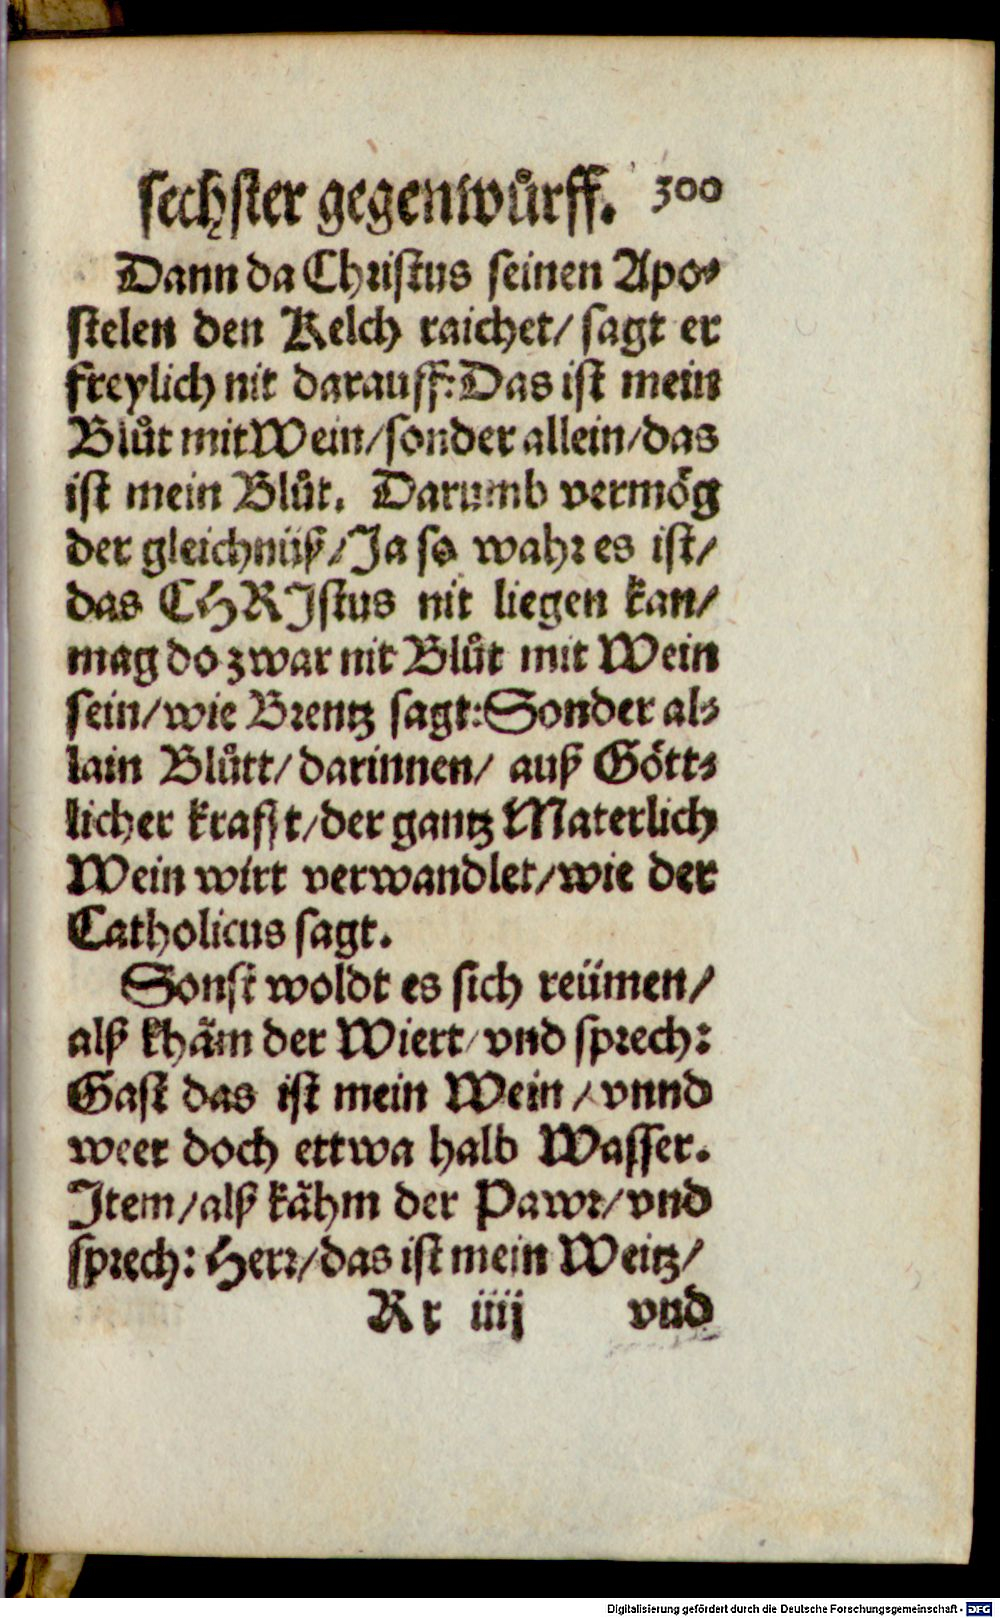 sechster gegenwůrff. 300
Dann da Christus seinen Apo-
stelen den Kelch raichet/ sagt er
freylich nit darauff: Das ist mein
Blůt mit Wein/ sonder allein/ das
ist mein Blůt. Darumb vermög
der gleichnüß/ Ja so wahr es ist/
das CHRIstus nit liegen kan/
mag do zwar nit Blůt mit Wein
sein/ wie Brentz sagt: Sonder al-
lain Blůtt/ darinnen/ auß Gött-
licher krafft/ der gantz Materlich
Wein wirt verwandlet/ wie der
Catholicus sagt.
Sonst woldt es sich reümen/
alß khäm der Wiert/ vnd sprech:
Gast das ist mein Wein/ vnnd
weer doch ettwa halb Wasser.
Item/ alß kähm der Pawr/ vnd
sprech: Herr/ das ist mein Weitz/
Rr iiij vnd
Digitalisierung gefördert durch die Deutsche Forschungsgemeinschaft - DFG